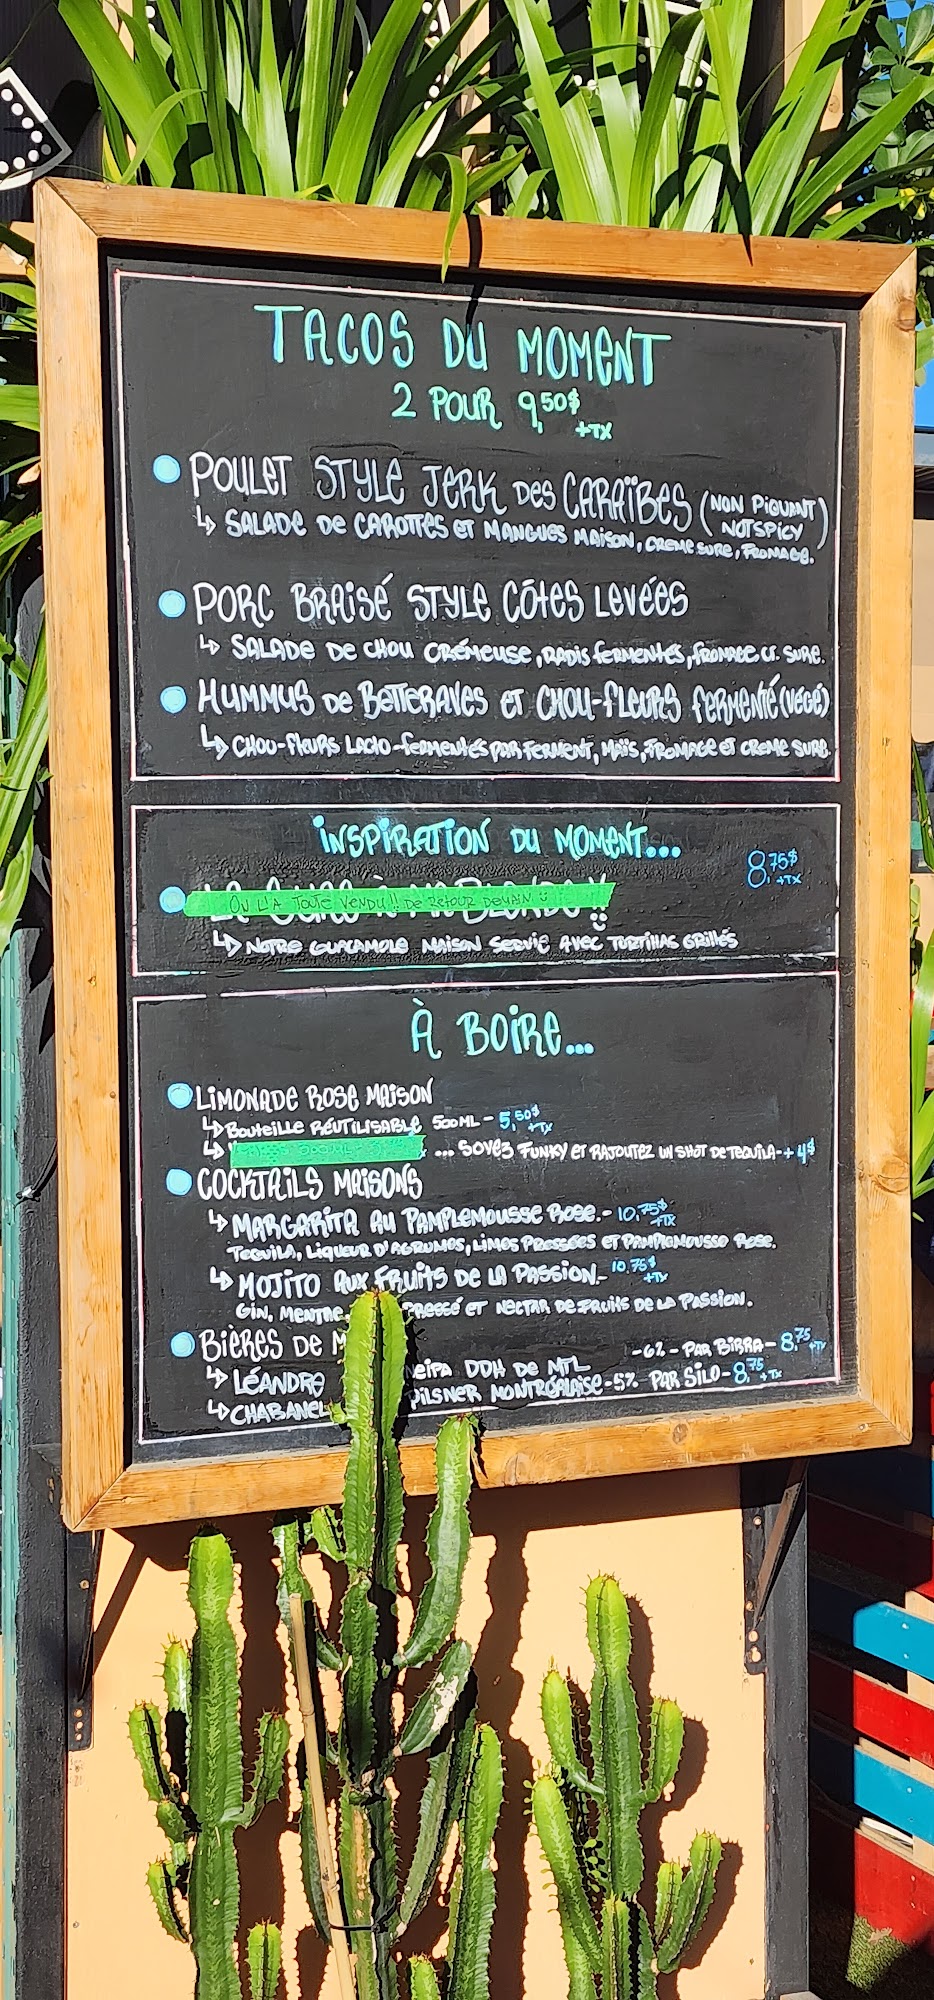 TACOS DU MOMENT
2 POUR 9,50$ +TX
POULET STYLE JERK DES CARAÏBES (NON PIQUANT NOT SPICY)
↳ SALADE DE CAROTTES ET MANGUES MAISON, CREME SURE, FROMAGE.
PORC BRAISÉ STYLE CÔTES LEVÉES
↳ SALADE DE CHOU CRÉMEUSE, RADIS FERMENTÉS, FROMAGE, CR. SURE.
HUMMUS DE BETTERAVES ET CHOU-FLEURS FERMENTÉ (VÉGÉ)
↳ CHOU-FLEURS LACTO-FERMENTÉS PAR FERMENT, MAÏS, FROMAGE ET CREME SURE.
INSPIRATION DU MOMENT...
8,75$ +TX
ON L'A TOUTE VENDU!! DE RETOUR DEMAIN
↳ NOTRE GUACAMOLE MAISON SERVIE AVEC TORTILLAS GRILLÉS
À BOIRE...
LIMONADE ROSE MAISON
↳ BOUTEILLE RÉUTILISABLE 500ML - 5,50$ +TX
↳ ... SOYEZ FUNKY ET RAJOUTEZ UN SHOT DE TEQUILA - +4$
COCKTAILS MAISONS
↳ MARGARITA AU PAMPLEMOUSSE ROSE. - 10,75$ +TX
TEQUILA, LIQUEUR D'AGRUMES, LIMES PRESSÉES ET PAMPLEMOUSSE ROSE.
↳ MOJITO AUX FRUITS DE LA PASSION. - 10,75$ +TX
GIN, MENTHE, PRESSÉ ET NECTAR DE FRUITS DE LA PASSION.
BIÈRES DE M
↳ LÉANDRE NEIPA DDH DE MTL -6% - PAR BIRRA - 8,75 +TX
↳ CHABANEL PILSNER MONTRÉALAISE - 5% PAR SILO - 8,75 +TX